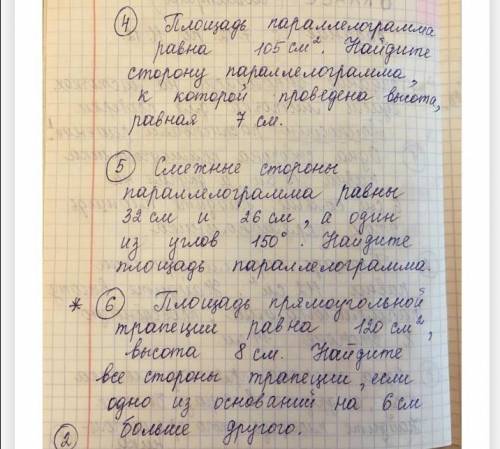 4 Площадь параллелограмма
равна 105 см². Найдите
сторону параллелограмма,
к которой проведена высота,
равная 7 см.
5 Смежные стороны
параллелограмма равны
32 см и 26 см, а один
из углов 150°. Найдите
площадь параллелограмма.
* 6 Площадь прямоугольной
трапеции равна 120 см²,
высота 8 см. Найдите
все стороны трапеции, если
одно из оснований на 6 см
2 больше другого.